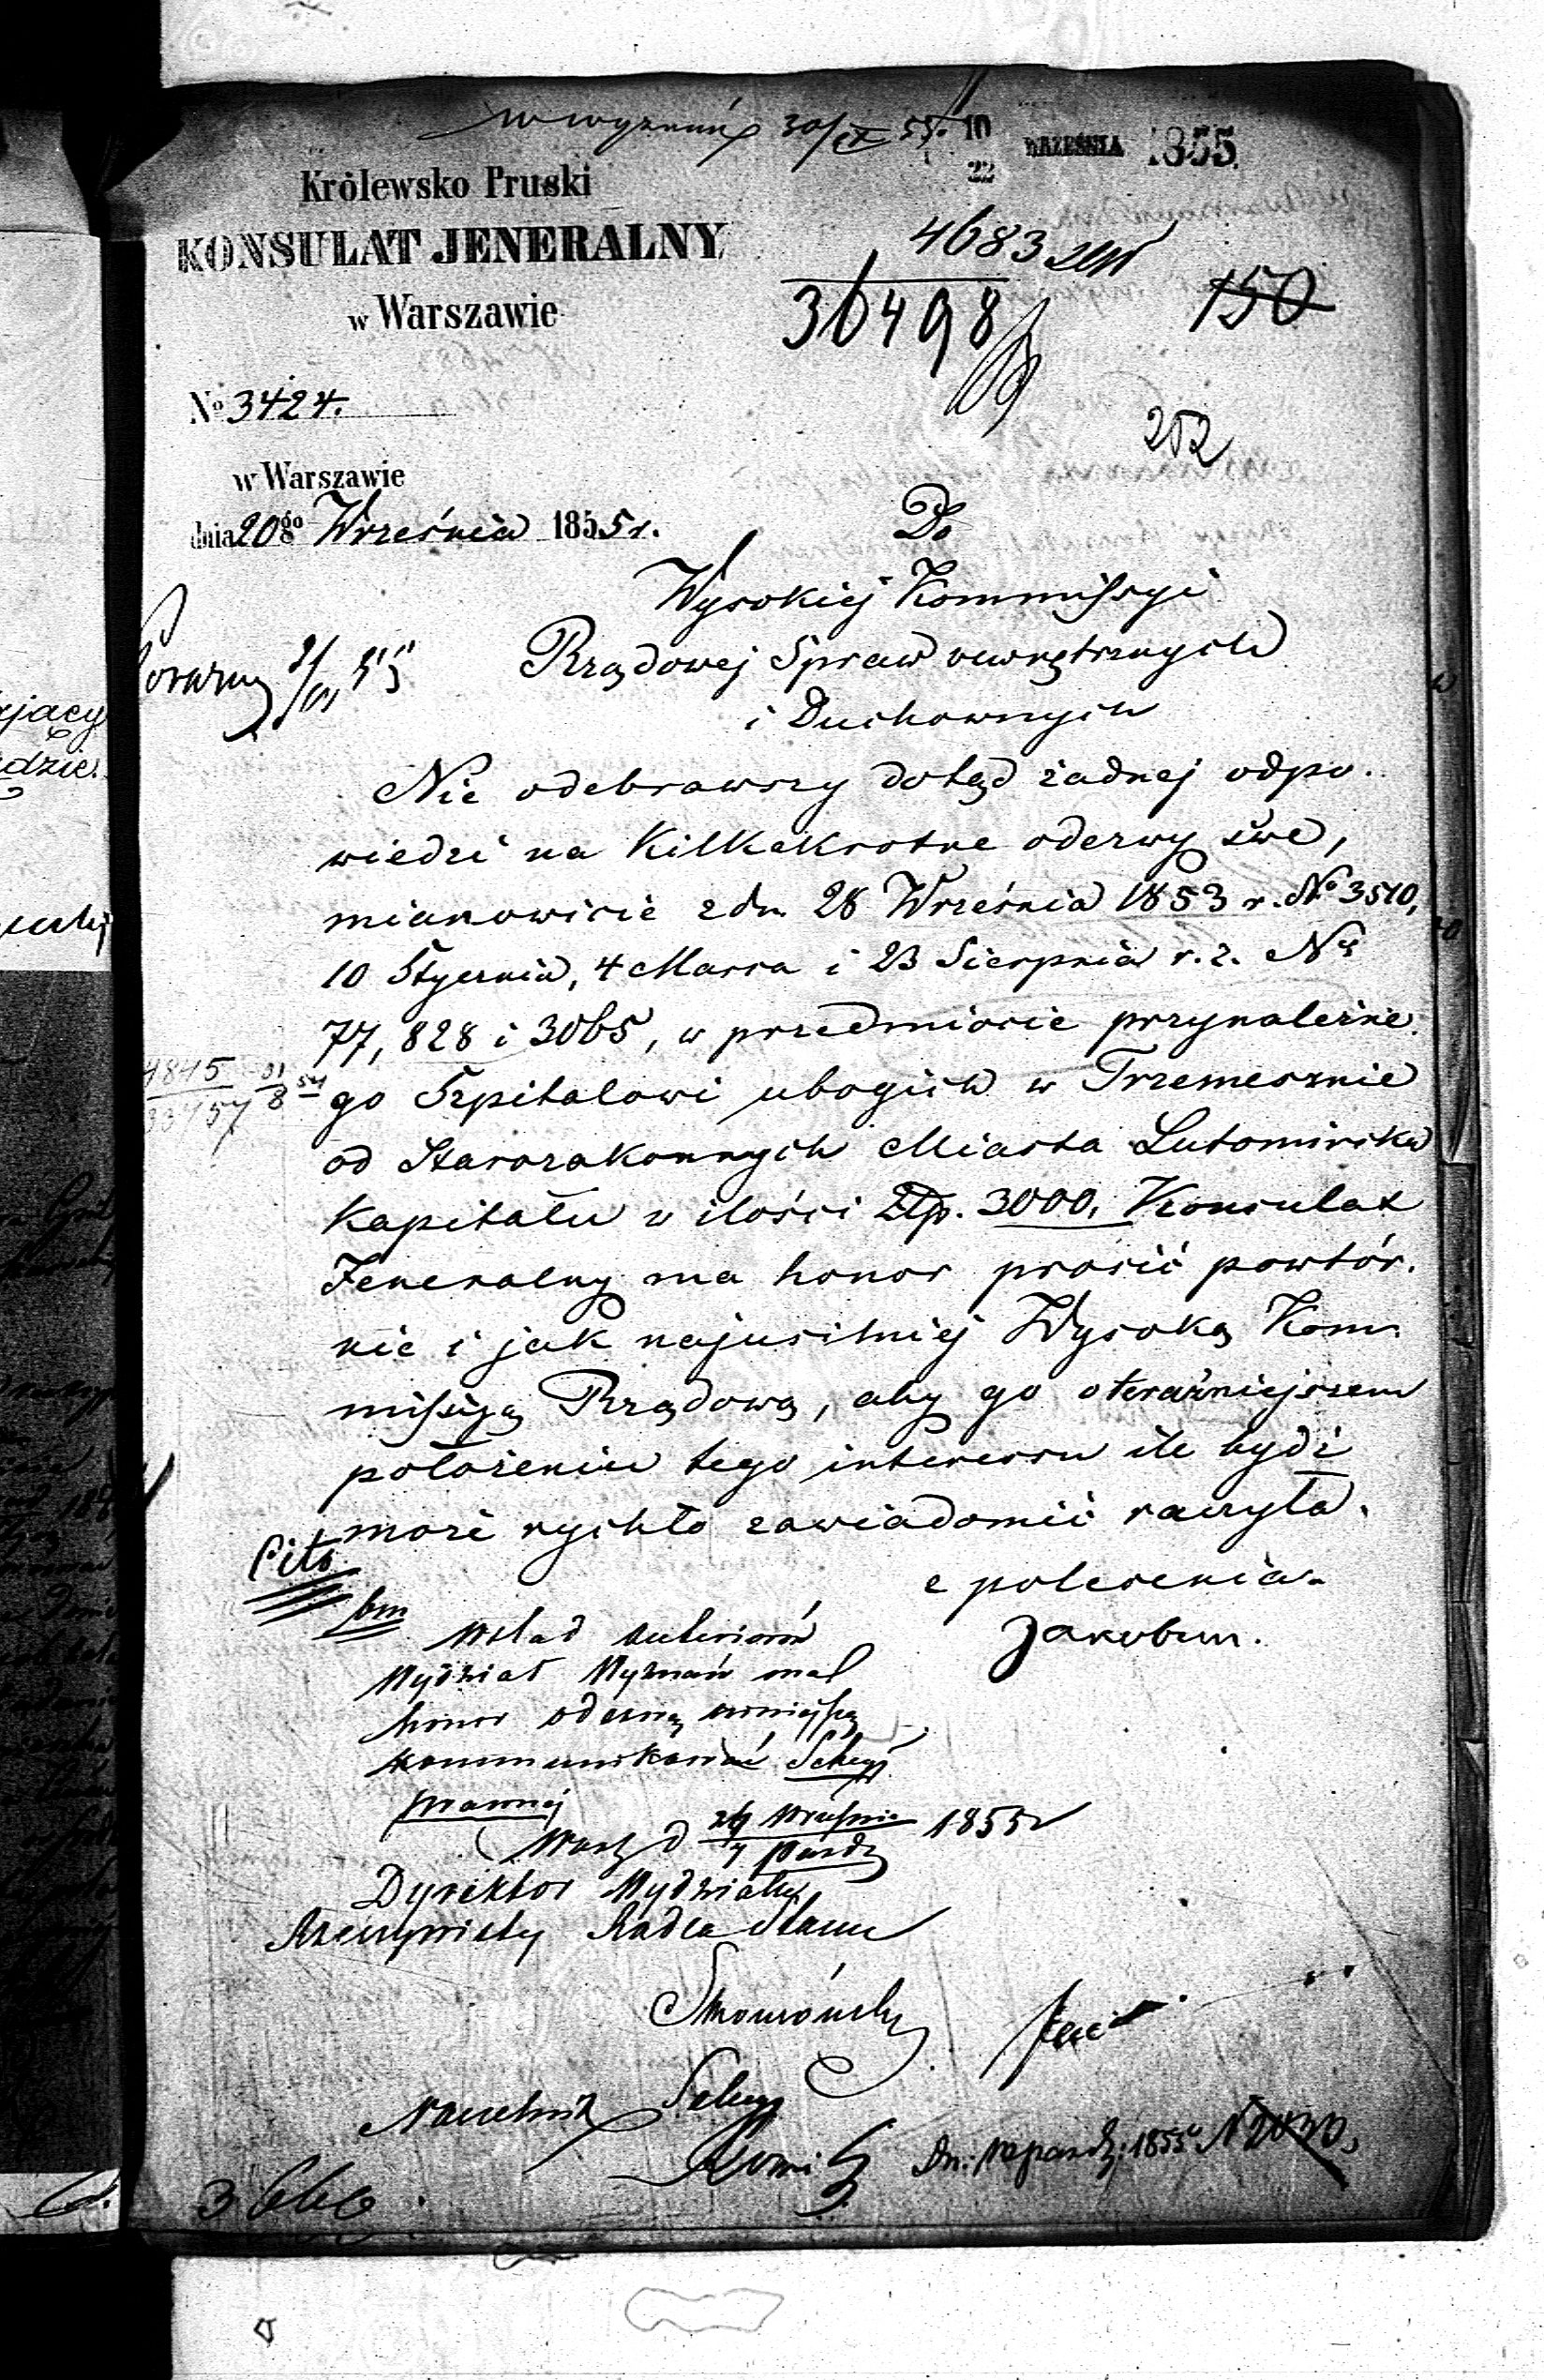 w wyznań 30/IX 55. 10/22 WRZEŚNIA 1855.
Królewsko Pruski
KONSULAT JENERALNY
w Warszawie
4683
36498
150
252
No 3424.
w Warszawie
dnia 20go Września 1855 r.
Do
Wysokiej Kommissyi
Rządowej Spraw wewnętrznych
i Duchownych
Nie odebrawszy dotąd żadnej odpo-
wiedzi na kilkakrotne odezwy swe,
mianowicie z dn. 28 Września 1853 r. No 3510,
10 Stycznia, 4 Marca i 23 Sierpnia r. z. Nr
77, 828 i 3065, w przedmiocie przynależne-
go Szpitalowi ubogich w Trzemesznie
od Starozakonnych Miasta Lutomirska
Kapitału w ilości Złp. 3000, Konsulat
Jeneralny ma honor prosić powtór-
nie i jak najusilniej Wysoką Kom-
missyą Rządową, aby go o teraźniejszem
położeniu tego interessu ile bydź
może rychło zawiadomić raczyła.
z polecenia
Jakobun.
Cito
bm
Wślad anteriorów
Wydział Wyznań ma
honor odezwę niniejszą
kommunikować Sekcyi
prawnej
Warsz d 24 Wrześnie 1855 r
Paźdz
Dyrektor Wydziału
Rzeczywisty Radca Stanu
Naczelnik Sekcyi
1855
3666
4845
33457